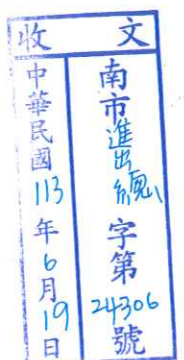 收文
南市進出總字第24306號
中華民國113年6月19日